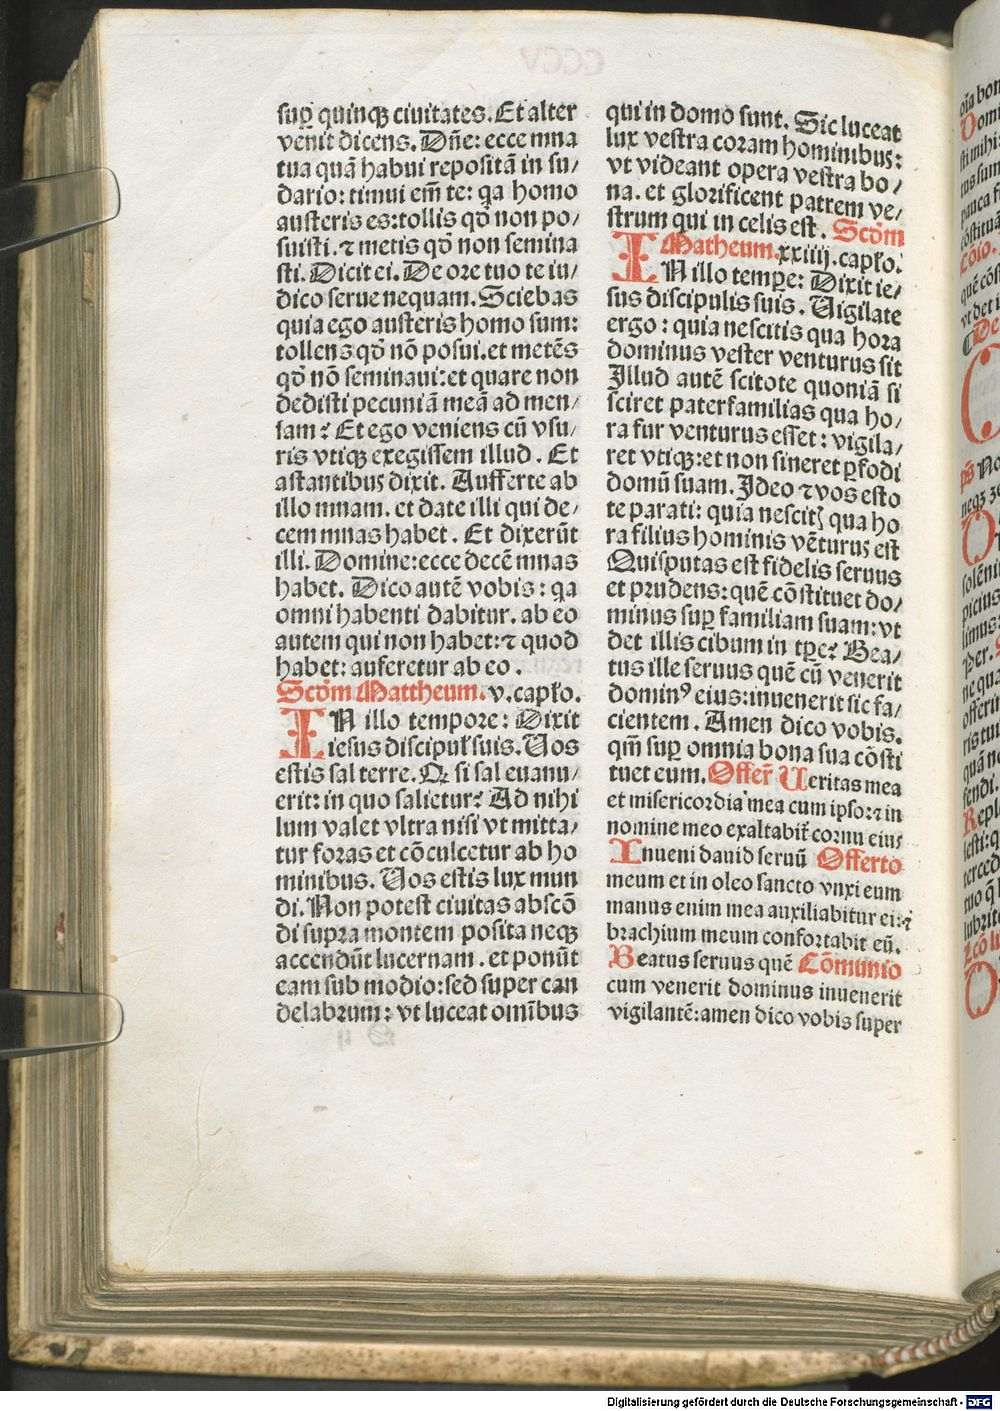 sup̱ quinqꝫ ciuitates. Et alter
venit dicens. Dn̄e: ecce mna
tua quā habui repositā in su/
dario: timui em̄ te: qa homo
austeris es: tollis qd̄ non po/
suisti. ⁊ metis qd̄ non semina
sti. Dicit ei. De ore tuo te iu/
dico serue nequam. Sciebas
quia ego austeris homo sum:
tollens qd̄ nō posui. et metēs
qd̄ nō seminaui: et quare non
dedisti pecuniā meā ad men/
sam? Et ego veniens cū vsu/
ris vtiqꝫ exegissem illud. Et
astantibus dixit. Aufferte ab
illo mnam. et date illi qui de/
cem mnas habet. Et dixerūt
illi. Domine: ecce decē mnas
habet. Dico autē vobis: qa
omni habenti dabitur. ab eo
autem qui non habet: ⁊ quod
habet: auferetur ab eo.
Scd̄m Mattheum. v. capło.
IN illo tempore: Dixit
iesus discipuł suis. Uos
estis sal terre. Qꝫ si sal euanu/
erit: in quo salietur? Ad nihi
lum valet vltra nisi vt mitta/
tur foras et cōculcetur ab ho
minibus. Uos estis lux mun
di. Non potest ciuitas abscō
di supra montem posita neqꝫ
accendūt lucernam. et ponūt
eam sub modio: sed super can
delabrum: vt luceat omībus
qui in domo sunt. Sic luceat
lux vestra coram hominibus:
vt videant opera vestra bo/
na. et glorificent patrem ve/
strum qui in celis est. Scd̄m
Matheum. xxiiij. capło.
IN illo temp̱e: Dixit ie/
sus discipulis suis. Uigilate
ergo: quia nescitis qua hora
dominus vester venturus sit
Illud autē scitote quoniā si
sciret paterfamilias qua ho/
ra fur venturus esset: vigila/
ret vtiqꝫ: et non sineret ꝑfodi
domū suam. Ideo ⁊ vos esto
te parati: quia nescitꝭ qua ho
ra filius hominis vēturus est
Quisputas est fidelis seruus
et prudens: quē cōstituet do/
minus sup̱ familiam suam: vt
det illis cibum in tp̱e? Bea/
tus ille seruus quē cū venerit
dominꝰ eius: inuenerit sic fa/
cientem. Amen dico vobis.
qm̄ sup̱ omnia bona sua cōsti
tuet eum. Offer̄ Ueritas mea
et misericordia mea cum ipso: ⁊ in
nomine meo exaltabit̄ cornu eius
Inueni dauid seruū Offerto
meum et in oleo sancto vnxi eum
manus enim mea auxiliabitur ei: ⁊
brachium meum confortabit eū.
Beatus seruus quē Cōmunio
cum venerit dominus inuenerit
vigilantē: amen dico vobis super
Digitalisierung gefördert durch die Deutsche Forschungsgemeinschaft - DFG